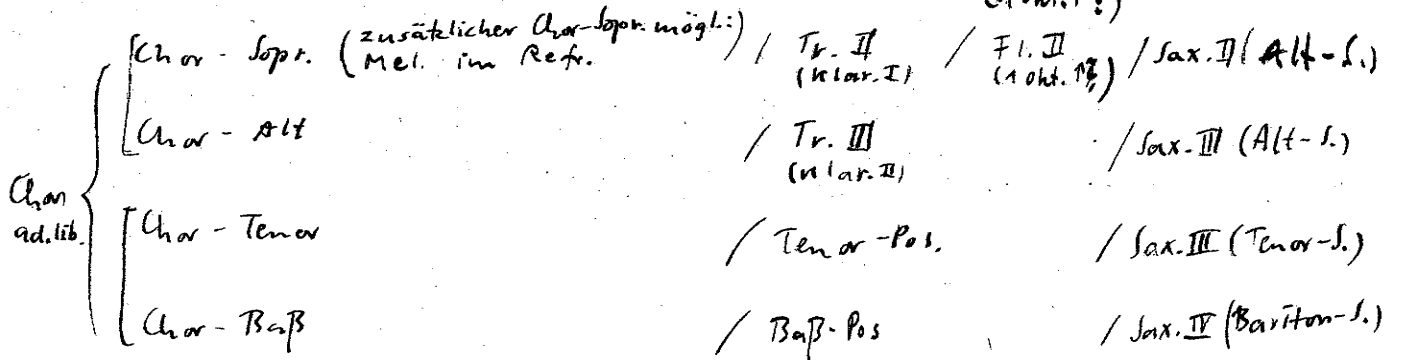 (1 Okt. ↑ ?)
Chor - Sopr. (zusätzlicher Chor-Sopr. mögl.: Mel. im Refr.) / Tr. II (Klar. I) / Fl. II (1 Okt. ↑?) / Sax. II (Alt-S.)
Chor - Alt / Tr. III (Klar. II) / Sax. III (Alt-S.)
Chor ad. lib.
Chor - Tenor / Tenor-Pos. / Sax. III (Tenor-S.)
Chor - Baß / Baß-Pos / Sax. IV (Bariton-S.)